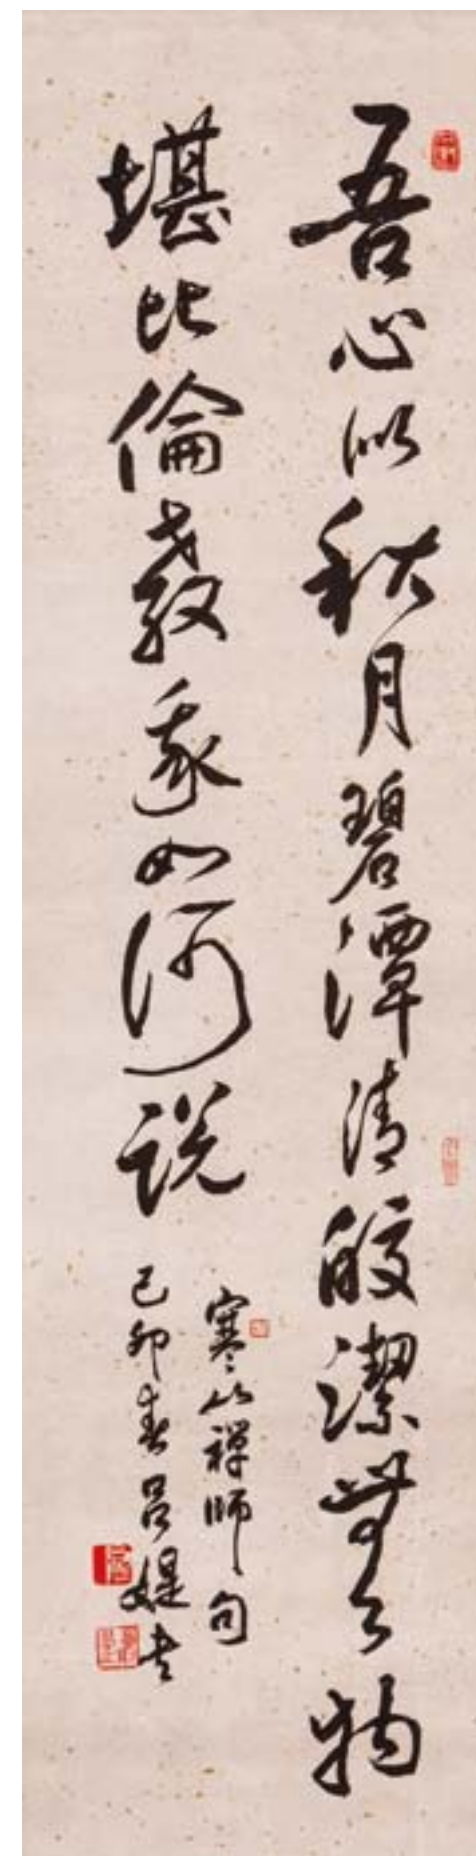 吾心似秋月碧潭清皎潔無了物
堪比倫教我如何說
寒山禪師句
己卯春呂媞书